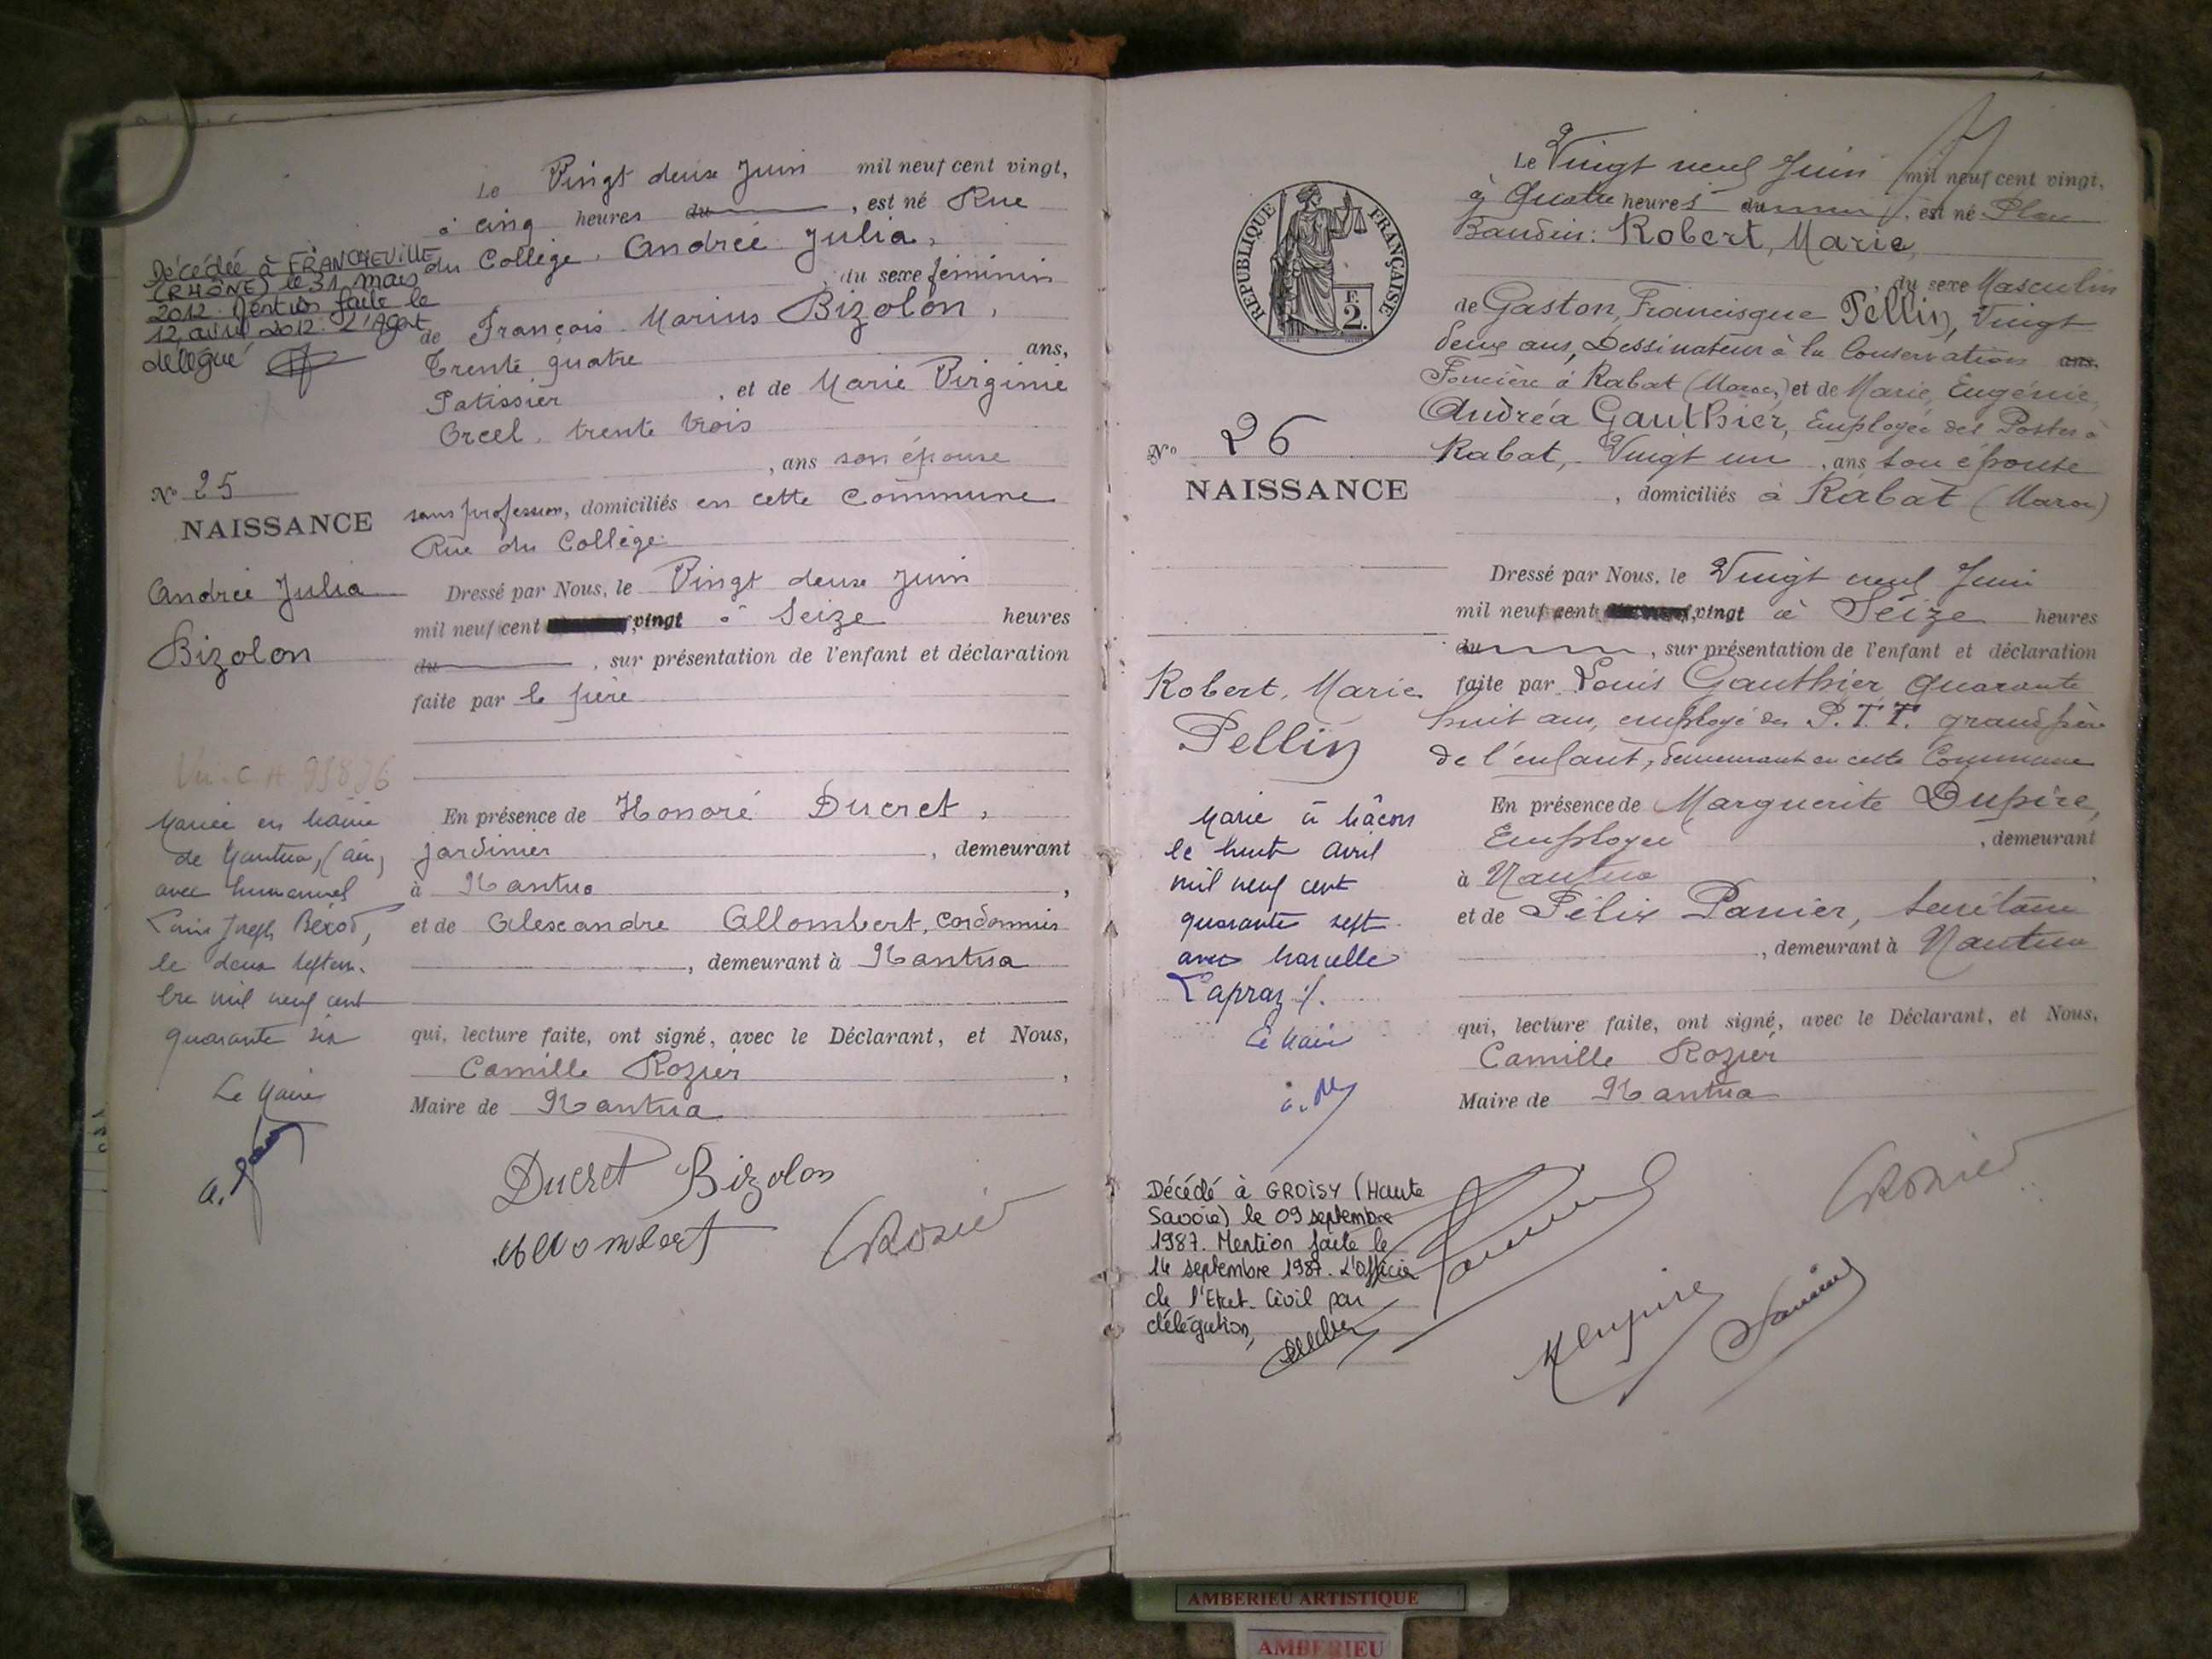 Le Vingt deux Juin mil neuf cent vingt,
à cinq heures du , est né Rue
du Collège. Andrée Julia,
, du sexe féminin
de François Marius Bizolon,
Trente quatre ans,
Patissier , et de Marie Virginie
Orcel. trente trois
, ans son épouse
sans profession, domiciliés en cette Commune
Rue du Collège
Dressé par Nous, le Vingt deux Juin
mil neuf cent vingt à Seize heures
du , sur présentation de l'enfant et déclaration
faite par le père
En présence de Honoré Ducret,
jardinier , demeurant
à Nantua ,
et de Alexandre Allombert, Cordonnier
, demeurant à Nantua
qui, lecture faite, ont signé, avec le Déclarant, et Nous,
Camille Rozier ,
Maire de Nantua
Ducret Bizolon
Allombert CRozier
Décédée à FRANCHEVILLE
(RHÔNE) le 31 mars
2012. Mention faite le
12 avril 2012. L'Agent
délégué
No 25
NAISSANCE
Andrée Julia
Bizolon
Mariée en Mairie
de Nantua, (Ain)
avec Emmanuel
Louis Joseph Bérod,
le deux septem-
bre mil neuf cent
quarante six
Le Maire
Le Vingt neuf Juin mil neuf cent vingt,
à Quatre heures du , est né Place
Baudin: Robert, Marie,
, du sexe Masculin
de Gaston, Francisque Pellin, Vingt
deux ans, Dessinateur à la Conservation ans.
Foncière à Rabat (Maroc) et de Marie, Eugénie,
Andréa Gauthier, Employée des Postes à
Rabat, Vingt un , ans son épouse
, domiciliés à Rabat (Maroc)
Dressé par Nous, le Vingt neuf Juin
mil neuf cent vingt à Seize heures
du , sur présentation de l'enfant et déclaration
faite par Louis Gauthier quarante
huit ans, employé des P.T.T. grand père
de l'enfant, demeurant en cette Commune
En présence de Marguerite Dupire,
Employée , demeurant
à Nantua ,
et de Félix Panier, Secrétaire
, demeurant à Nantua
qui, lecture faite, ont signé, avec le Déclarant, et Nous,
Camille Rozier
Maire de Nantua
CRozier
MDupire
RÉPUBLIQUE FRANÇAISE
F.
2.
No 26
NAISSANCE
Robert, Marie
Pellin
Marié à Mâcon
le huit avril
mil neuf cent
quarante sept
avec Marcelle
Lapraz ./.
Le Maire
Décédé à GROISY (Haute
Savoie) le 09 septembre
1987. Mention faite le
14 septembre 1987. L'Officier
de l'Etat. Civil par
délégation,
AMBERIEU ARTISTIQUE
AMBERIEU